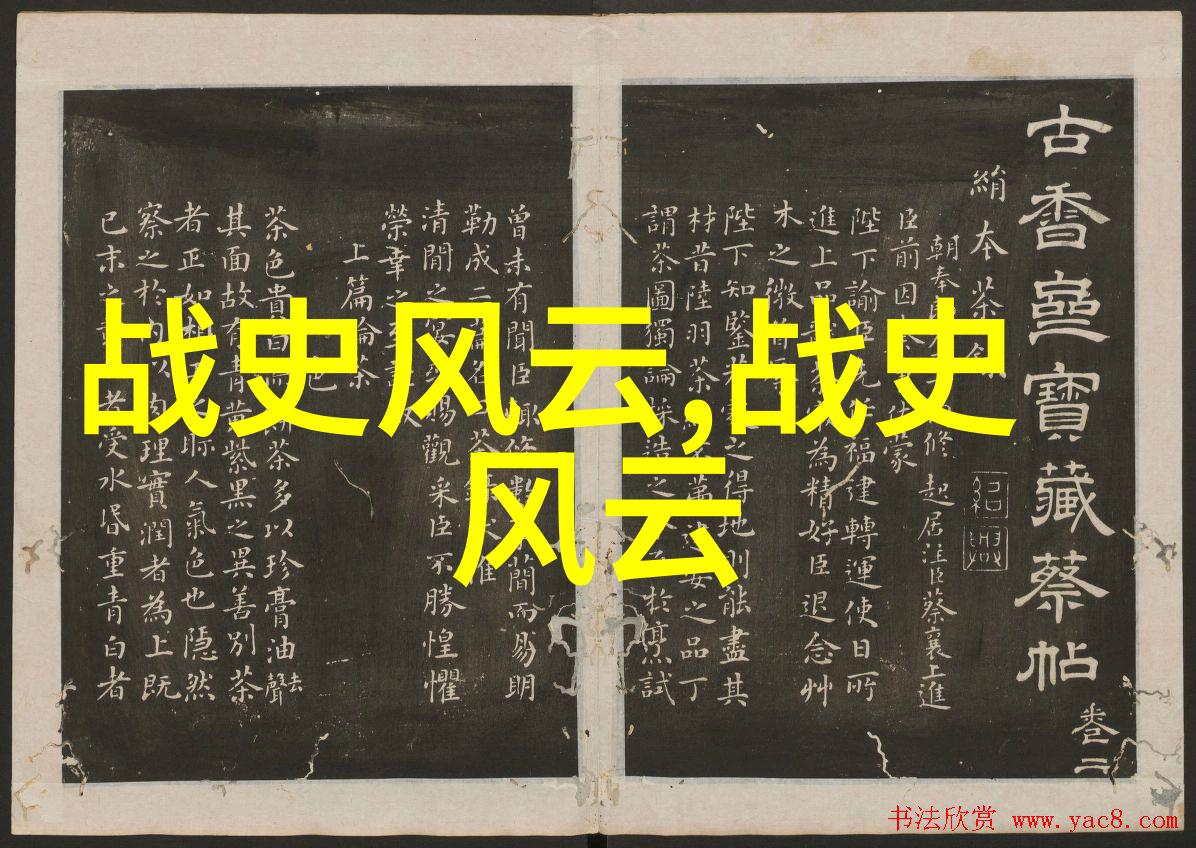 战史风云,战史
风云
古香齋寶藏蔡帖
卷二
絹本茶
紹興
朝奉 修起居注臣蔡襄上進
臣前因 事伏蒙
陛下諭臣先任福建轉運使日所
進上品 為精好臣退念艸
木之微首
陛下知鑒若 之得地則能盡其
材昔陸羽茶 建安之品丁
謂茶圖獨論採造之 於烹試
曾未有聞臣輒條數 簡而易明
勒成二篇名 茶 惟
清閒之宴或賜觀采臣不勝惶懼
榮幸之至
上篇論茶
色
茶色貴白而餅茶多以珍膏油去聲
其面故有青黃紫黑之異善別茶
者正如相 之眎人氣色也隱然
察之於內以肉理實潤者為上既
已末之 者受水昏重青白者
书法欣赏 www.yac8.com